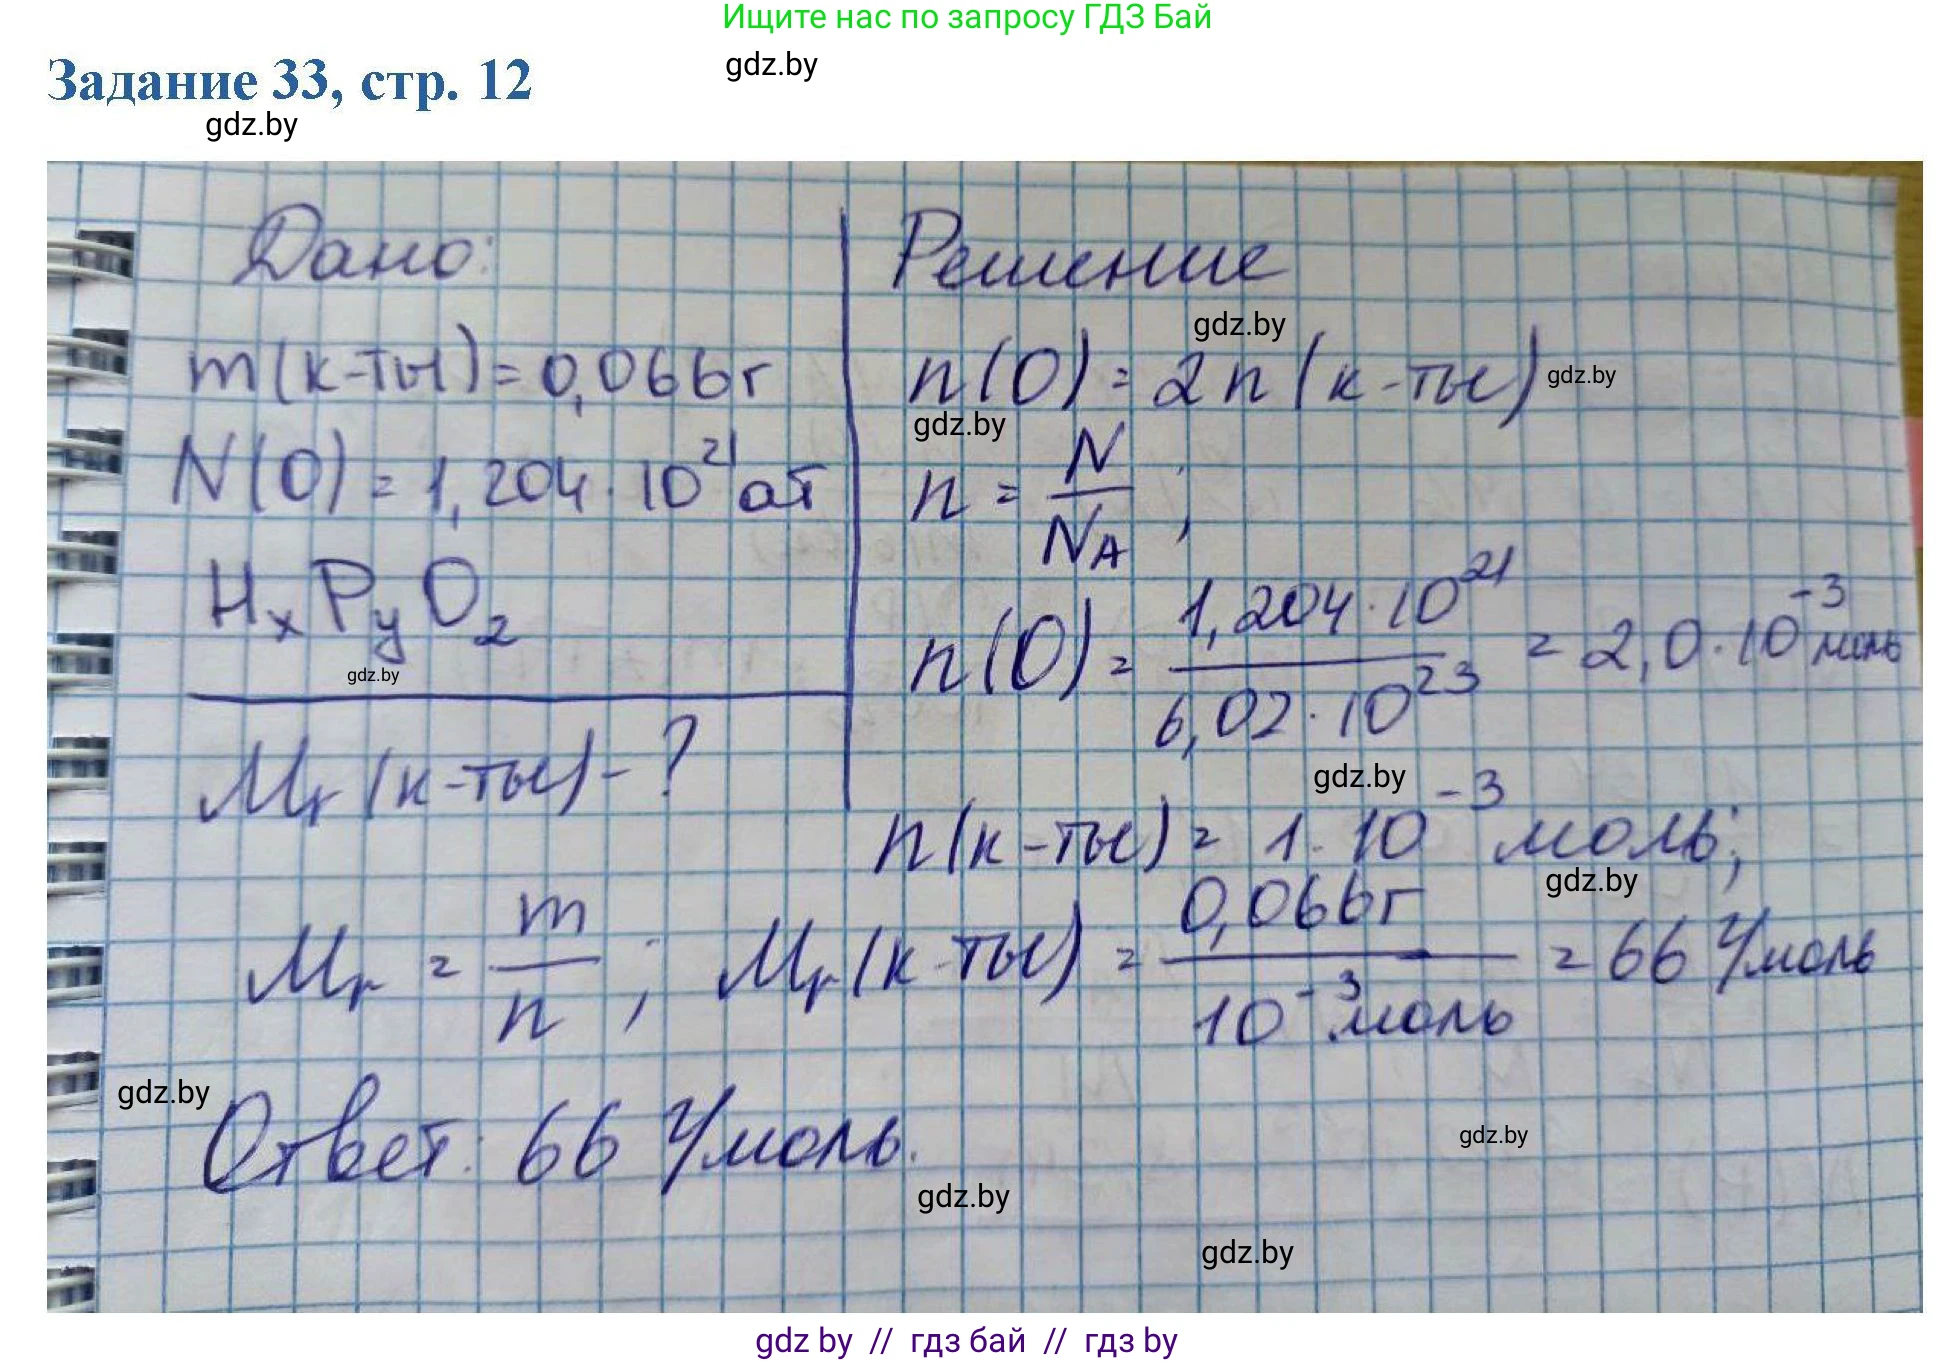 Ищите нас по запросу ГДЗ Бай
gdz.by
Задание 33, стр. 12
gdz.by
Дано:
m(к-ты) = 0,066г
N(O) = 1,204·10²¹ ат
HₓPᵧO₂
gdz.by
Mr(к-ты) - ?
Решение
gdz.by
n(O) = 2n(к-ты)
gdz.by
gdz.by
n = N/N_A;
n(O) = 1,204·10²¹ / 6,02·10²³ = 2,0·10⁻³ моль
gdz.by
n(к-ты) = 1·10⁻³ моль;
gdz.by
Mr = m/n; Mr(к-ты) = 0,066г / 10⁻³ моль = 66 г/моль
gdz.by
Ответ: 66 г/моль.
gdz.by
gdz.by
gdz.by
gdz by // гдз бай // гдз by